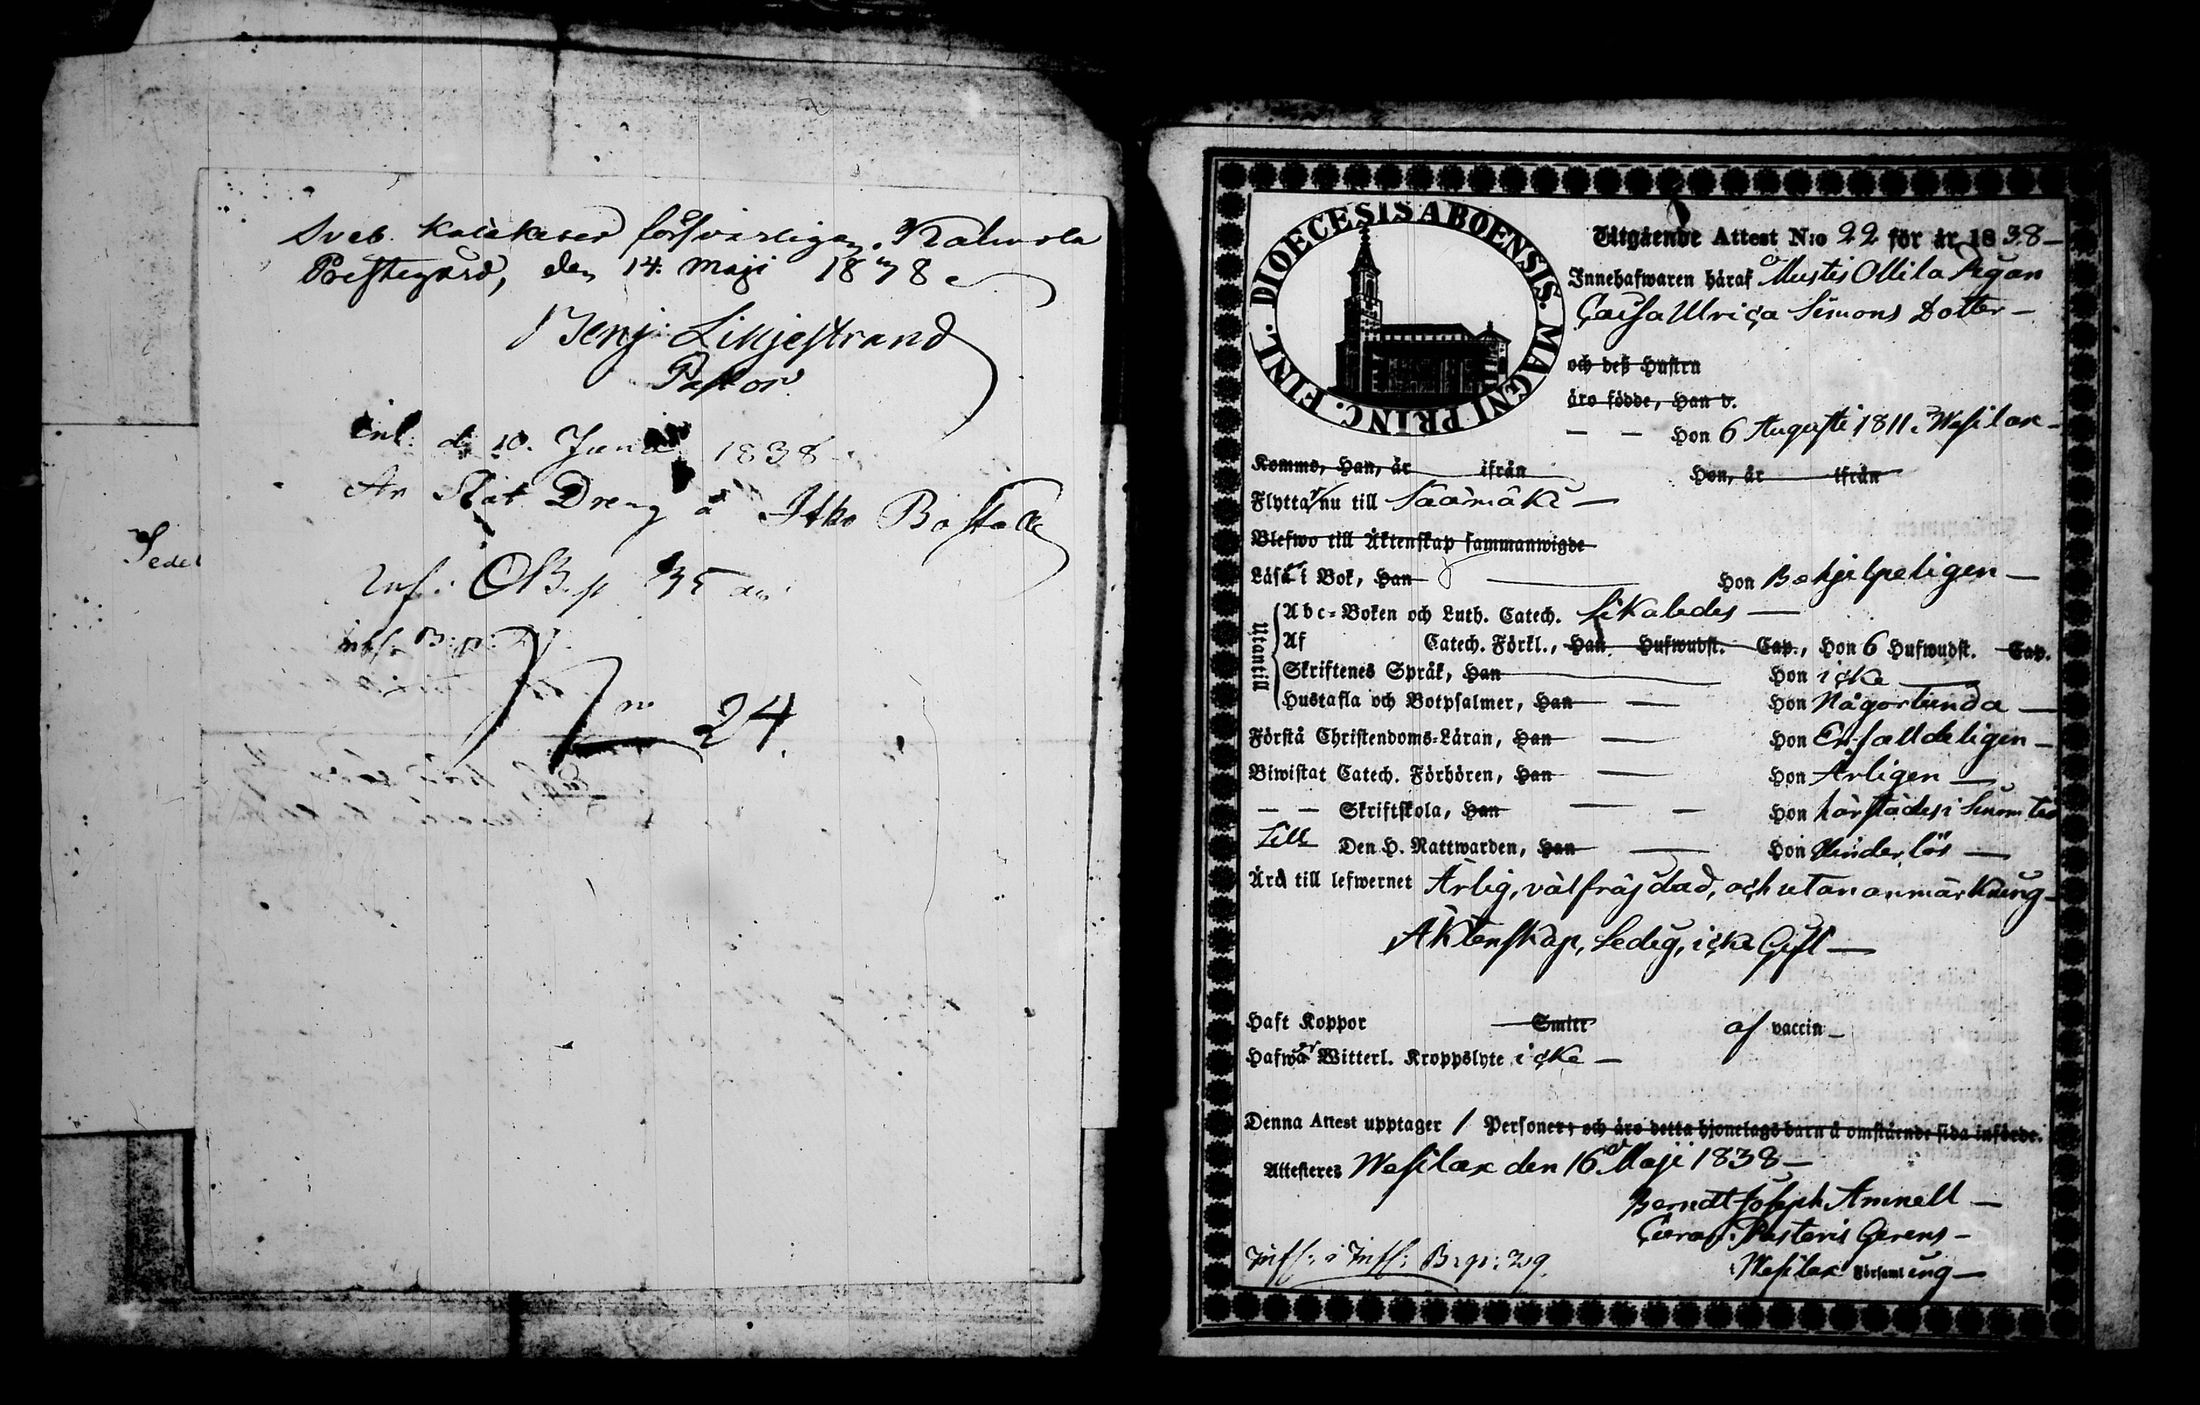 Sveb. Katekeser försvarligen. Kalvola
Prestegård, den 14. Maji 1838.
Benj: Liljestrand
Pastor.
inl. d. 10. Junii 1838
Är Stat Dreng å Itko Bostelle
Inf: B. p. 35
B: p:
Nro 24.
Sedel
DIOECESIS ABOENSIS. MAGNI PRINC. FINL.
Utgående Attest N:o 22 för år 1838 —
Innehafwaren häraf Mustis Ollila Pigan
Caisa Ulrica Simons Dotter —
och deß Hustru
äro födde, Han d.
— — Hon 6 Augusti 1811. Wesilax —
Komme, Han, år ifrån Hon, år ifrån
Flytta r nu till Säärmäki —
Blefwo till Äktenskap sammanwigde
Läsa i Bok, Han — Hon Behjelpeligen —
Utantill
Abc-Boken och Luth. Catech. Likaledes —
Af Catech. Förkl., Han Hufwudst. Cap., Hon 6 Hufwudst. Cap.
Skriftenes Språk, Han Hon icke —
Hustafla och Botpsalmer, Han — Hon Någorlunda —
Förstå Christendoms-Läran, Han — Hon Enfalldeligen —
Biwistat Catech. Förhören, Han — Hon Årligen —
— — Skriftskola, Han — — Hon härstädes i sinom tid
Till Den H. Nattwarden, Han — Hon Hinderlös —
Äro till lefwernet Ärlig, välfräjdad, och utan anmärkning —
Äktenskap, Ledig, icke Gift —
Haft Koppor Smitt af vaccin —
Hafwa r Witterl. Kroppslyte icke —
Denna Attest upptager 1 Personer; och äro detta hjonelags barn å omstående sida införde.
Attesteres Wesilax den 16 Maji 1838 —
Berndt Joseph Amnell —
Curam Pastoris Gerens —
Wesilax Församl ing —
Inf: i Inf: B. p: 29.